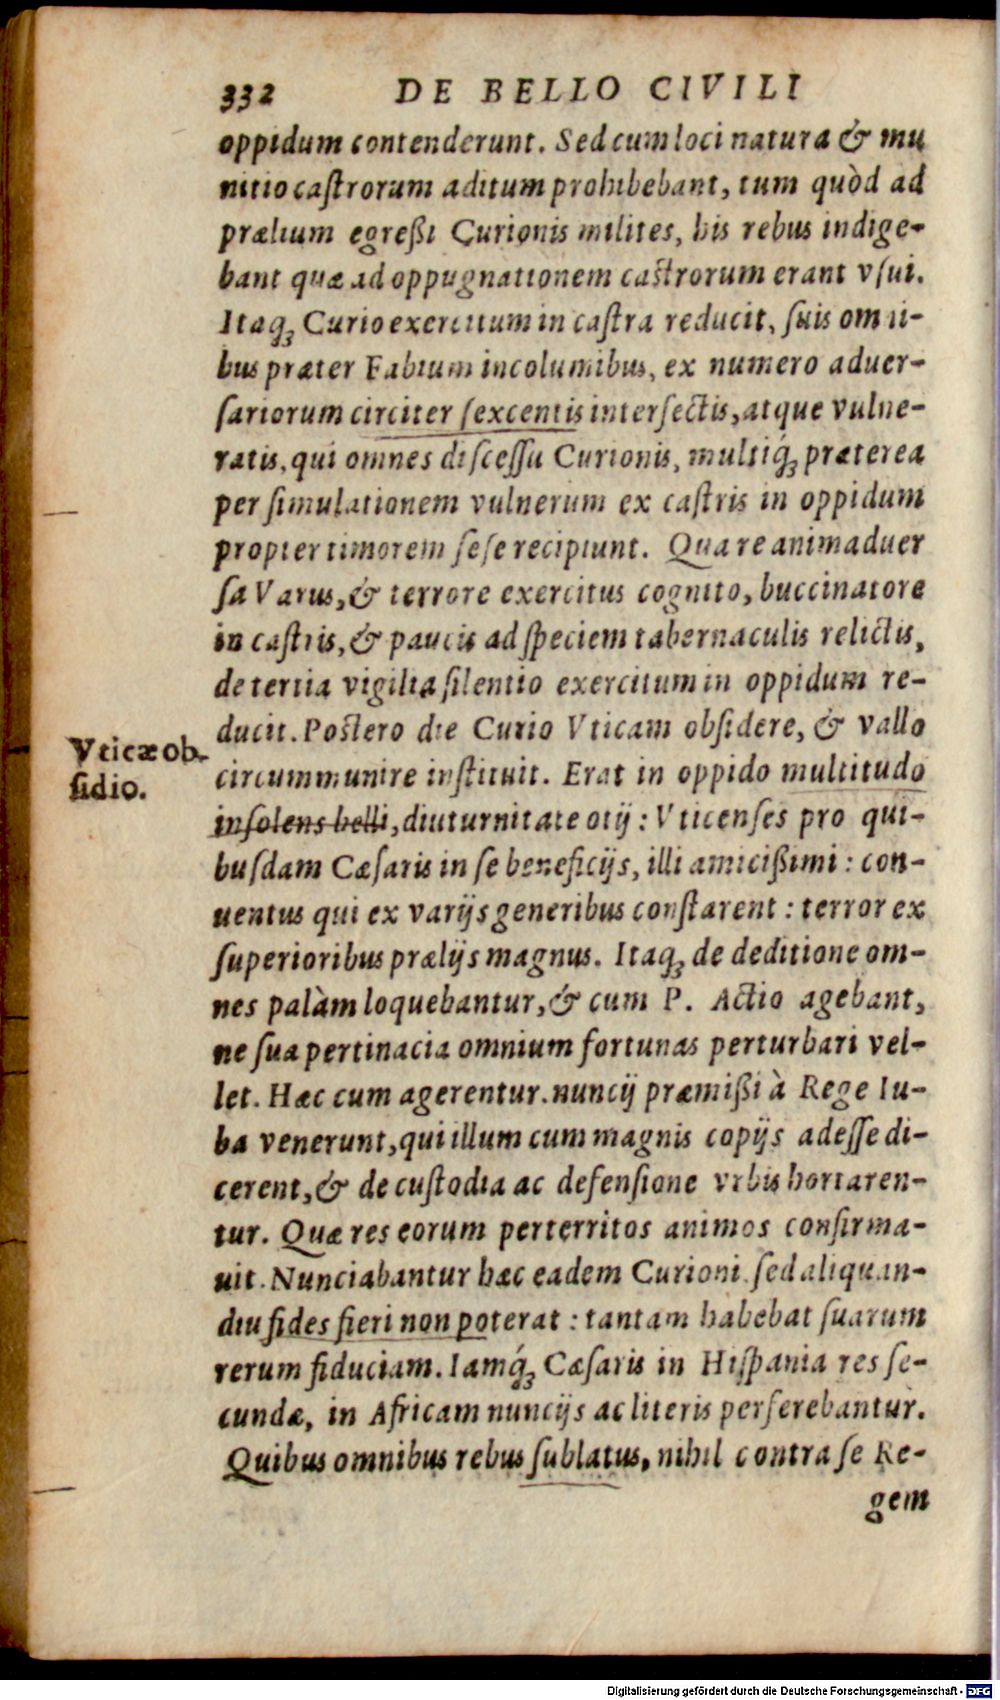 332 DE BELLO CIVILI
oppidum contenderunt. Sed cum loci natura & mu
nitio caſtrorum aditum prohibebant, tum quòd ad
prælium egreßi Curionis milites, his rebus indige-
bant quæ ad oppugnationem caſtrorum erant vſui.
Itaqꝫ Curio exercitum in caſtra reducit, ſuis omni-
bus præter Fabium incolumibus, ex numero aduer-
ſariorum circiter ſexcentis interfectis, atque vulne-
ratis, qui omnes diſceſſu Curionis, multiq́ꝫ præterea
per ſimulationem vulnerum ex caſtris in oppidum
propter timorem ſeſe recipiunt. Qua re animaduer
ſa Varus, & terrore exercitus cognito, buccinatore
in caſtris, & paucis ad ſpeciem tabernaculis relictis,
de tertia vigilia ſilentio exercitum in oppidum re-
ducit. Poſtero die Curio Vticam obſidere, & vallo
Vticæ ob-
ſidio.
circummunire inſtituit. Erat in oppido multitudo
inſolens belli, diuturnitate otij: Vticenſes pro qui-
buſdam Cæſaris in ſe beneficijs, illi amicißimi: con-
uentus qui ex varijs generibus conſtarent: terror ex
ſuperioribus prælijs magnus. Itaqꝫ de deditione om-
nes palàm loquebantur, & cum P. Actio agebant,
ne ſua pertinacia omnium fortunas perturbari vel-
let. Hæc cum agerentur. nuncij præmißi à Rege Iu-
ba venerunt, qui illum cum magnis copijs adeſſe di-
cerent, & de cuſtodia ac defenſione vrbis hortaren-
tur. Quæ res eorum perterritos animos confirma-
uit. Nunciabantur hæc eadem Curioni. ſed aliquan-
diu fides fieri non poterat: tantam habebat ſuarum
rerum fiduciam. Iamq́ꝫ Cæſaris in Hiſpania res ſe-
cundæ, in Africam nuncijs ac literis perferebantur.
Quibus omnibus rebus ſublatus, nihil contra ſe Re-
gem
Digitalisierung gefördert durch die Deutsche Forschungsgemeinschaft - DFG